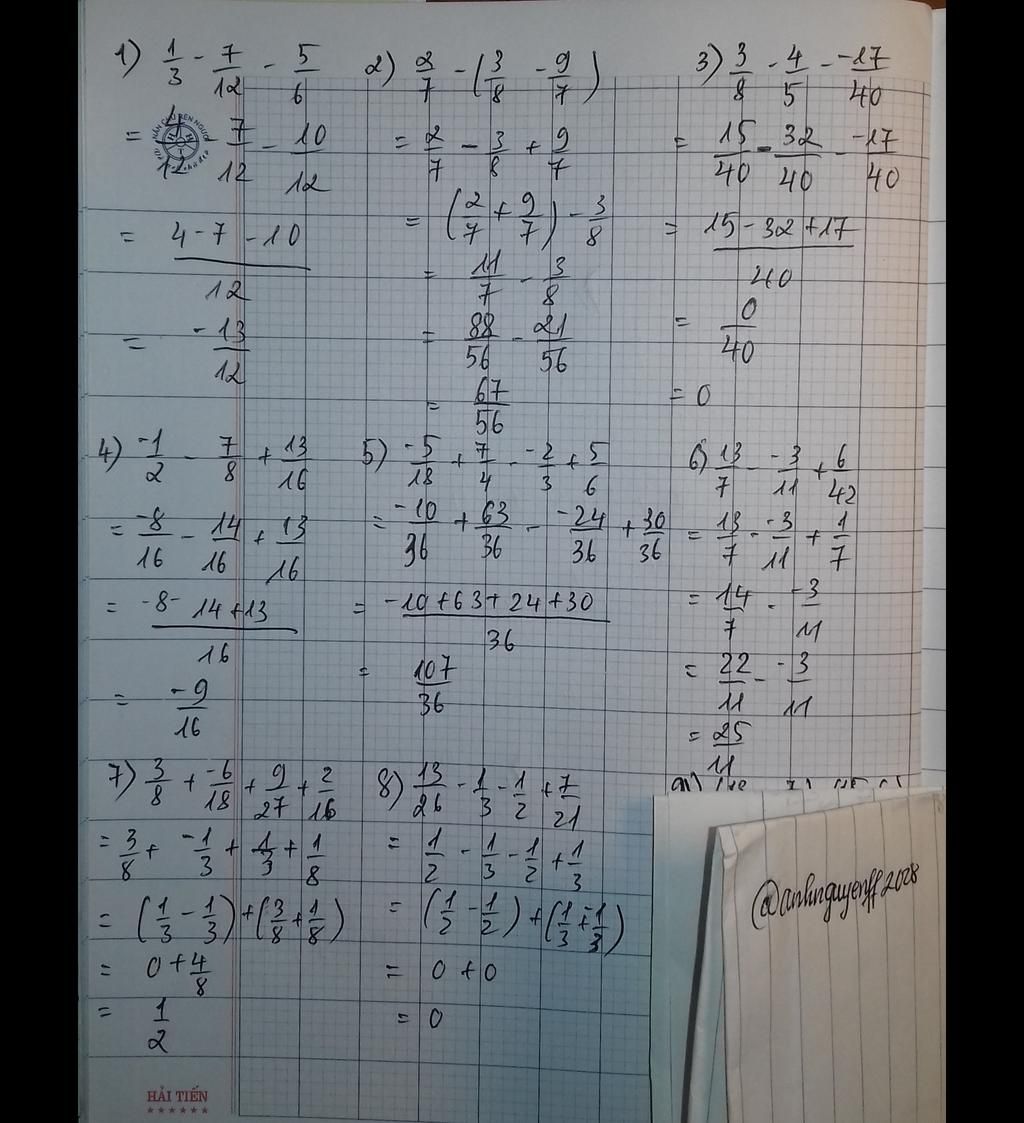 1) 1/3 - 7/12 - 5/6
= 4/12 - 7/12 - 10/12
= (4 - 7 - 10)/12
= -13/12
2) 2/7 - (3/8 - 9/7)
= 2/7 - 3/8 + 9/7
= (2/7 + 9/7) - 3/8
= 11/7 - 3/8
= 88/56 - 21/56
= 67/56
3) 3/8 - 4/5 - -17/40
= 15/40 - 32/40 - -17/40
= (15 - 32 + 17)/40
= 0/40
= 0
4) -1/2 - 7/8 + 13/16
= -8/16 - 14/16 + 13/16
= (-8 - 14 + 13)/16
= -9/16
5) -5/18 + 7/4 - -2/3 + 5/6
= -10/36 + 63/36 - -24/36 + 30/36
= (-10 + 63 + 24 + 30)/36
= 107/36
6) 13/7 - -3/11 + 6/42
= 13/7 - -3/11 + 1/7
= 14/7 - -3/11
= 22/11 - -3/11
= 25/11
7) 3/8 + -6/18 + 9/27 + 2/16
= 3/8 + -1/3 + 1/3 + 1/8
= (1/3 - 1/3) + (3/8 + 1/8)
= 0 + 4/8
= 1/2
8) 13/26 - 1/3 - 1/2 + 7/21
= 1/2 - 1/3 - 1/2 + 1/3
= (1/2 - 1/2) + (1/3 + -1/3)
= 0 + 0
= 0
@anhnguyenff2008
HẢI TIẾN